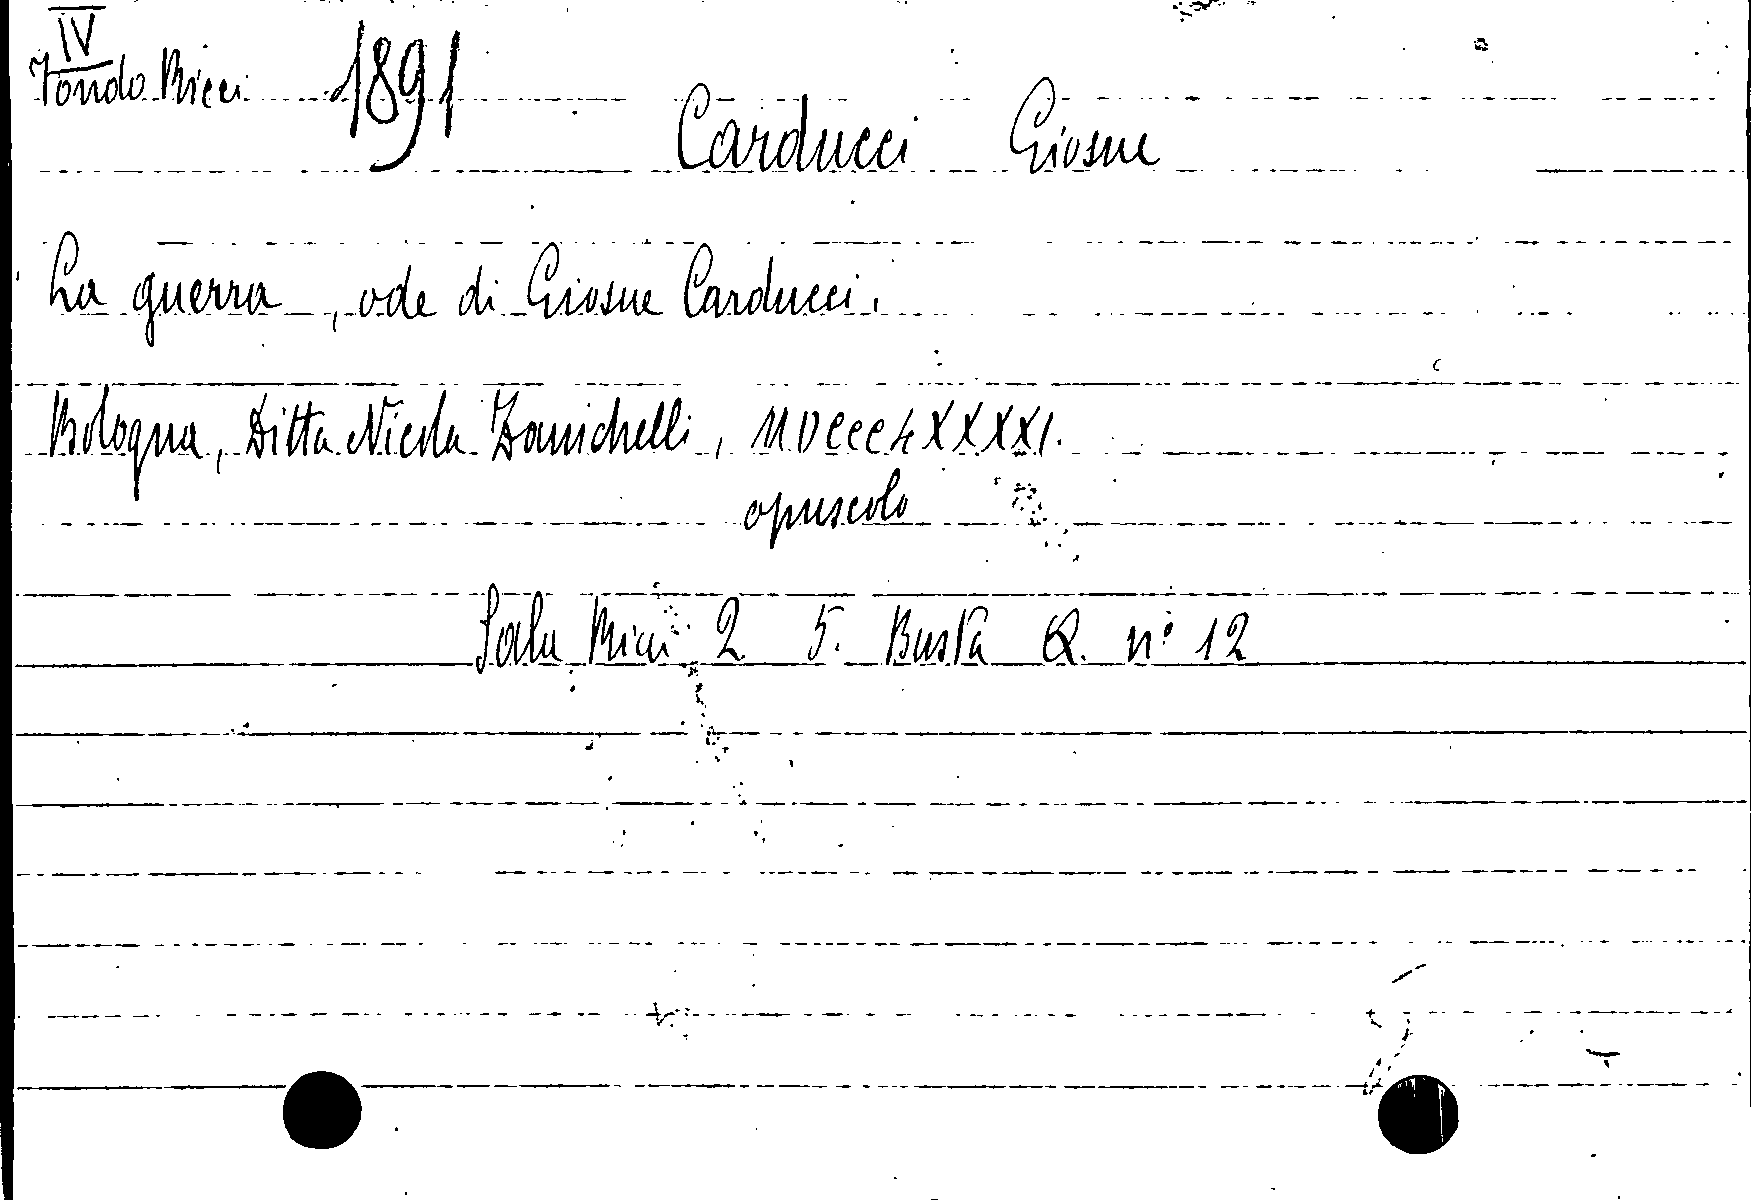 IV
Fondo Ricci 1891
Carducci Giosue
La guerra, ode di Giosue Carducci.
Bologna, Ditta Nicola Zanichelli, MDCCCLXXXXI.
opuscolo
Sala Ricci 2 5. Busta Q. n° 12